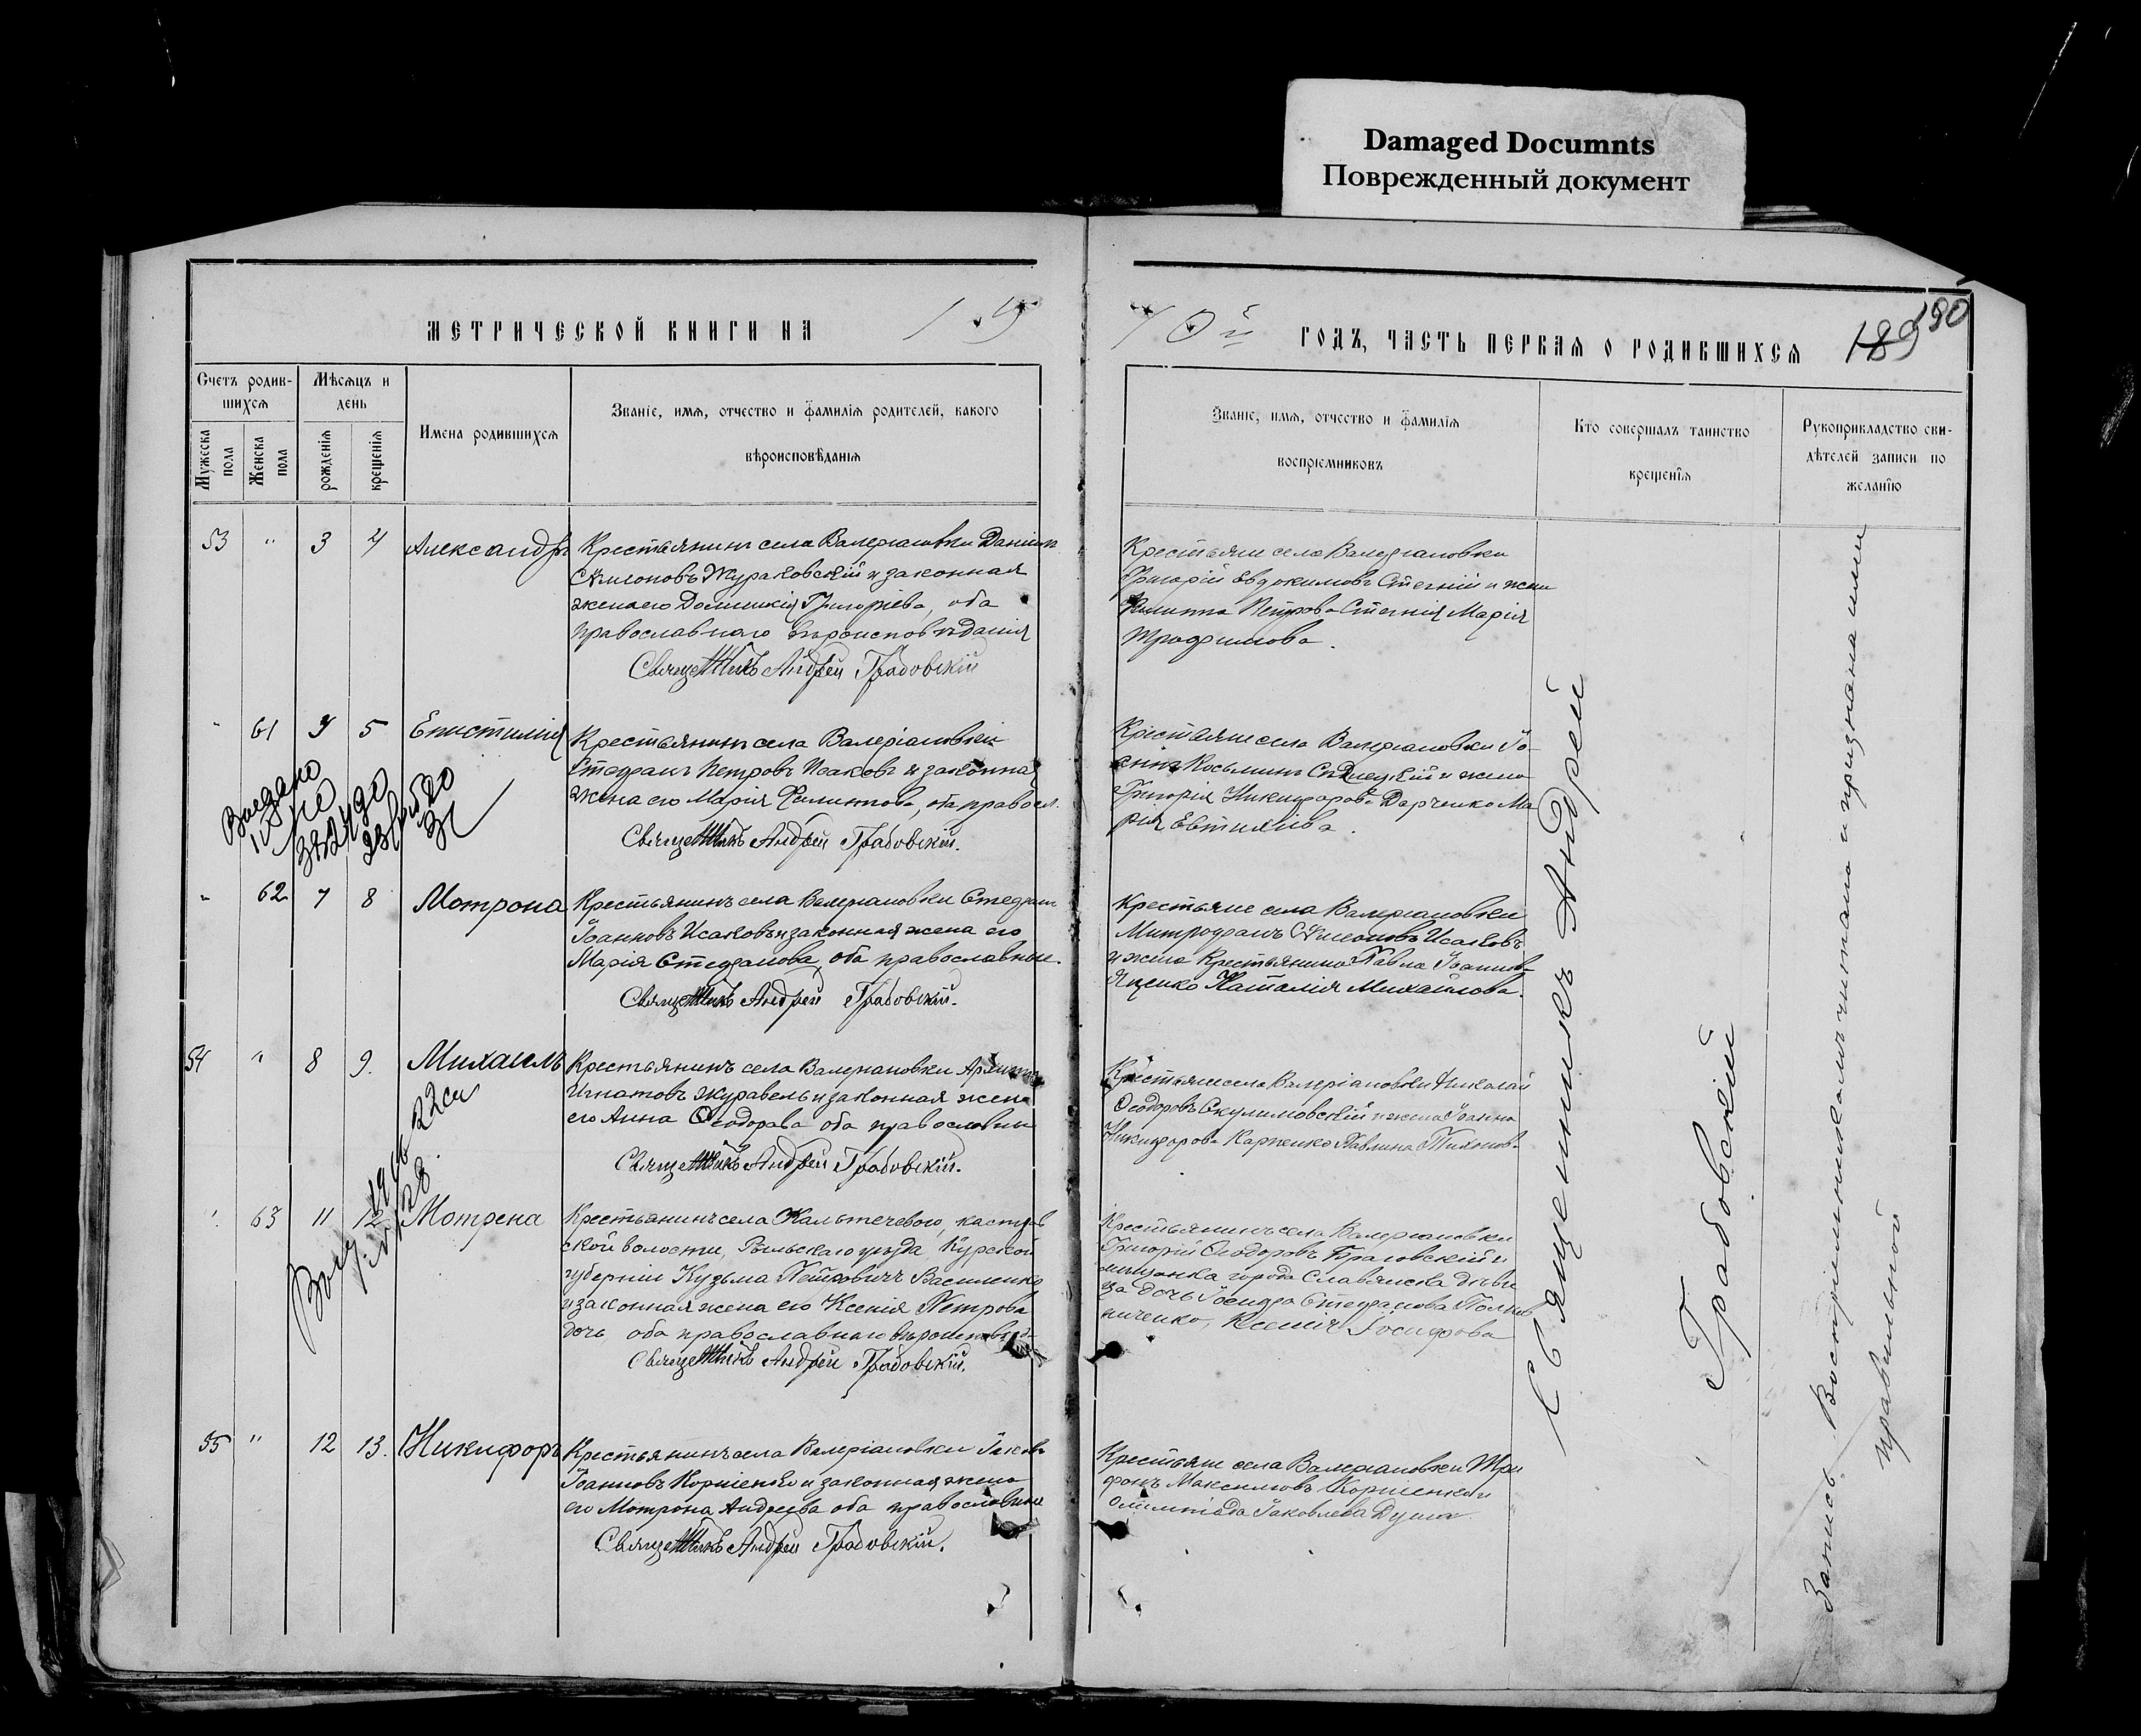 Damaged Documnts
Поврежденный документ
МЕТРИЧЕСКОЙ КНИГИ НА
ГОДЪ, ЧАСТЬ ПЕРВАЯ О РОДИВШИХСЯ
189 190
Счетъ родив-
шихся
Мѣсяцъ и
день
Мужеска пола
Женска пола
рожденія
крещенія
Имена родившихся
Званіе, имя, отчество и фамилія родителей, какого
вѣроисповѣданія
Званіе, имя, отчество и фамилія
воспріемниковъ
Кто совершалъ таинство
крещенія
Рукоприкладство сви-
дѣтелей записи по
желанію
53 " 3 4 Александръ
Крестьянинъ села Валеріановки Даніилъ
Симоновъ Жураковскій и законная
жена его Домникія Григоріева, оба
православнаго вѣроисповѣданія
Священникъ Андрей Грабовскій
Крестьяне села Валеріановки
Григорій Евдокимовъ Стегній и жена
Филиппа Петрова Стегнія Марія
Трофимова.
" 61 4 5 Епистимія
Крестьянинъ села Валеріановки
Стефанъ Петровъ Исаковъ и законная
жена его Марія Филиппова, оба правосл.
Священникъ Андрей Грабовскій.
Крестьяне села Валеріановки Іо-
аннъ Косьминъ и жена
Григорія Никифорова Марія Евтихіева.
" 62 7 8 Мотрона
Крестьянинъ села Валеріановки Стефанъ
Іоанновъ Исаковъ и законная жена его
Марія Стефанова, оба православные.
Священникъ Андрей Грабовскій.
Крестьяне села Валеріановки
Митрофанъ Симоновъ Исаковъ
и жена крестьянина Павла Іоаннова
Яценко Наталія Михайлова.
54 " 8 9. Михаилъ
Крестьянинъ села Валеріановки
Игнатовъ Журавель и законная жена
его Анна Ѳеодорова оба православны
Священникъ Андрей Грабовскій.
Крестьяне села Валеріановки Николай
Ѳеодоровъ Скулимовскій и жена Іоанна
Никифорова Карпенко Павлина Тихонова
" 63 11 12 Мотрена
Крестьянинъ села
ской волости, Рыльскаго уѣзда, Курской
губерніи Кузьма Петровичъ Василенко
и законная жена его Ксенія Петрова
дочь оба православнаго вѣроисповѣд-
Священникъ Андрей Грабовскій.
Крестьянинъ села Валеріановки
Григорій Ѳеодоровъ и
мѣщанка города Славянска дѣви
ца дочь Іосифа Стефанова
Ксенія Іосифова
55 " 12 13. Никифоръ
Крестьянинъ села Валеріановки Іаковъ
Іоанновъ Корніенко и законная жена
его Мотрона Андреева оба православные
Священникъ Андрей Грабовскій.
Крестьяне села Валеріановки Три
фонъ Максимовъ Корніенко и
Олимпіада Іаковлева Дума.
Священникъ Андрей
Грабовскій
Запись Воспріемникамъ читана и признана ими
правильной